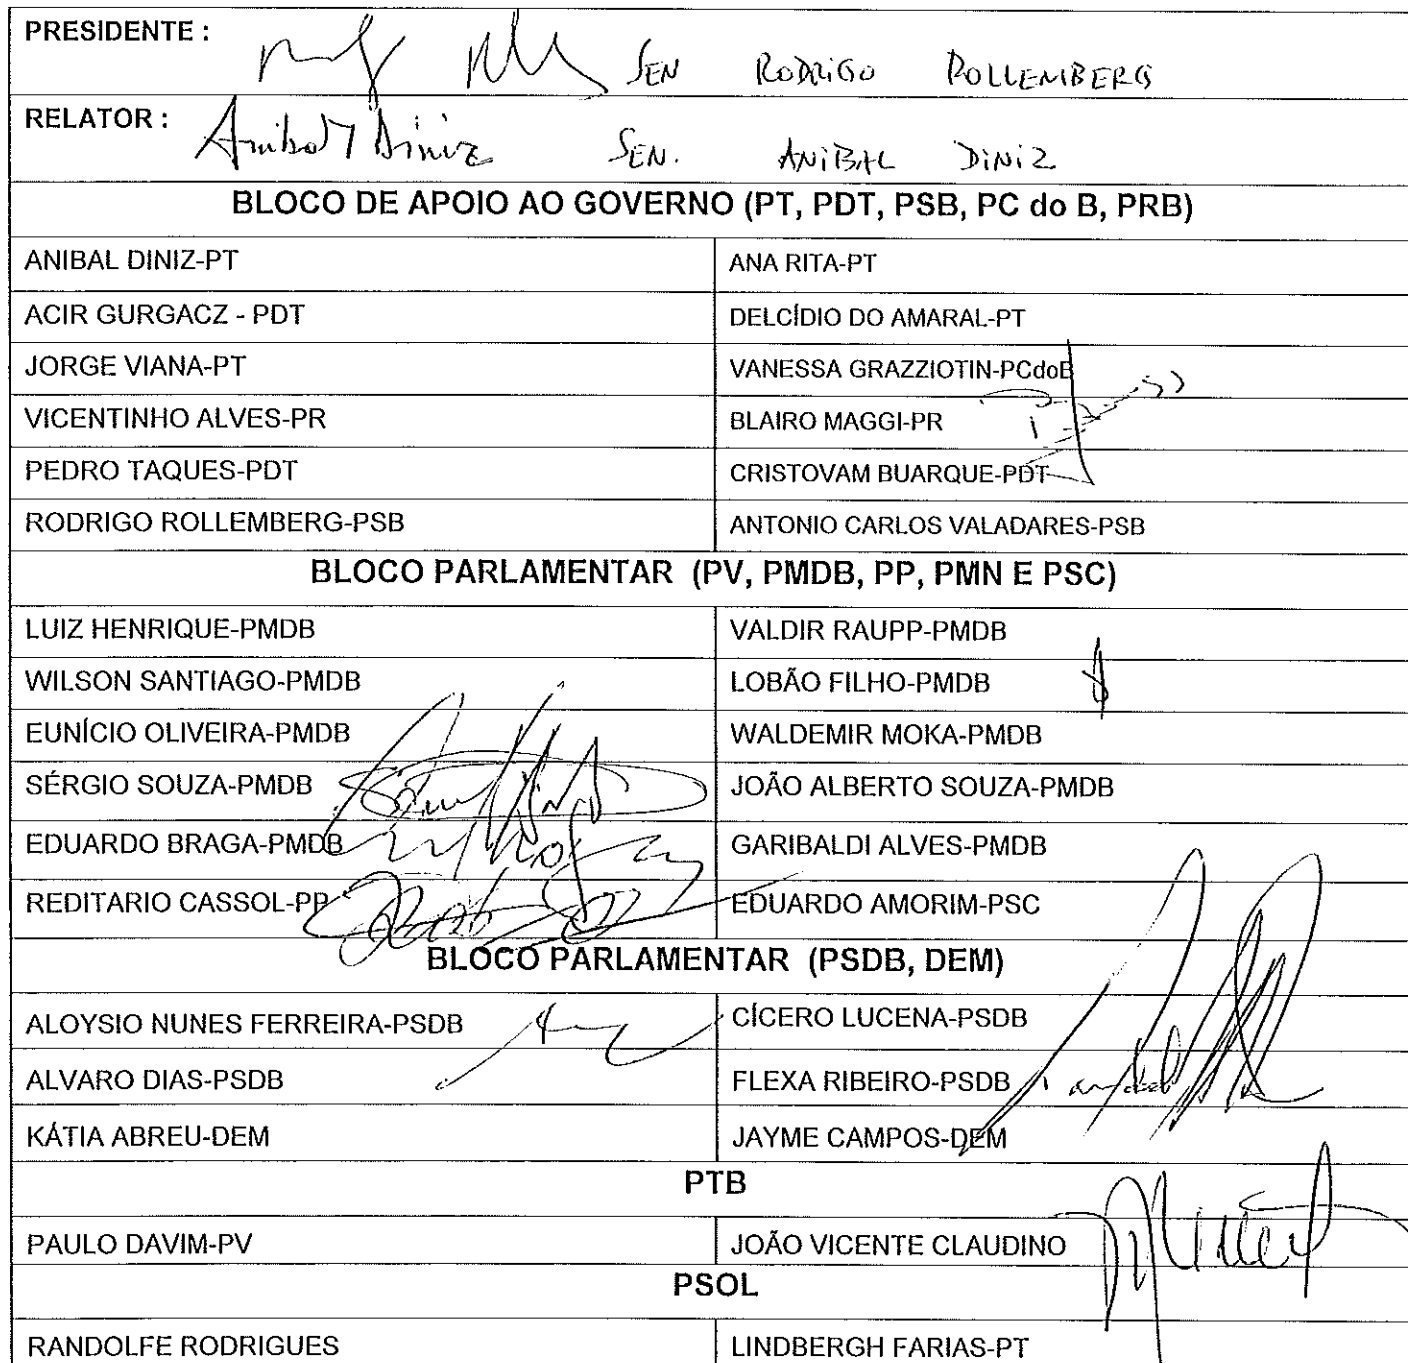 PRESIDENTE : SEN RODRIGO ROLLEMBERG
RELATOR : Anibal Diniz SEN. ANIBAL DINIZ
BLOCO DE APOIO AO GOVERNO (PT, PDT, PSB, PC do B, PRB)
ANIBAL DINIZ-PT ANA RITA-PT
ACIR GURGACZ - PDT DELCÍDIO DO AMARAL-PT
JORGE VIANA-PT VANESSA GRAZZIOTIN-PCdoB
VICENTINHO ALVES-PR BLAIRO MAGGI-PR
PEDRO TAQUES-PDT CRISTOVAM BUARQUE-PDT
RODRIGO ROLLEMBERG-PSB ANTONIO CARLOS VALADARES-PSB
BLOCO PARLAMENTAR (PV, PMDB, PP, PMN E PSC)
LUIZ HENRIQUE-PMDB VALDIR RAUPP-PMDB
WILSON SANTIAGO-PMDB LOBÃO FILHO-PMDB
EUNÍCIO OLIVEIRA-PMDB WALDEMIR MOKA-PMDB
SÉRGIO SOUZA-PMDB JOÃO ALBERTO SOUZA-PMDB
EDUARDO BRAGA-PMDB GARIBALDI ALVES-PMDB
REDITARIO CASSOL-PP EDUARDO AMORIM-PSC
BLOCO PARLAMENTAR (PSDB, DEM)
ALOYSIO NUNES FERREIRA-PSDB CÍCERO LUCENA-PSDB
ALVARO DIAS-PSDB FLEXA RIBEIRO-PSDB
KÁTIA ABREU-DEM JAYME CAMPOS-DEM
PTB
PAULO DAVIM-PV JOÃO VICENTE CLAUDINO
PSOL
RANDOLFE RODRIGUES LINDBERGH FARIAS-PT